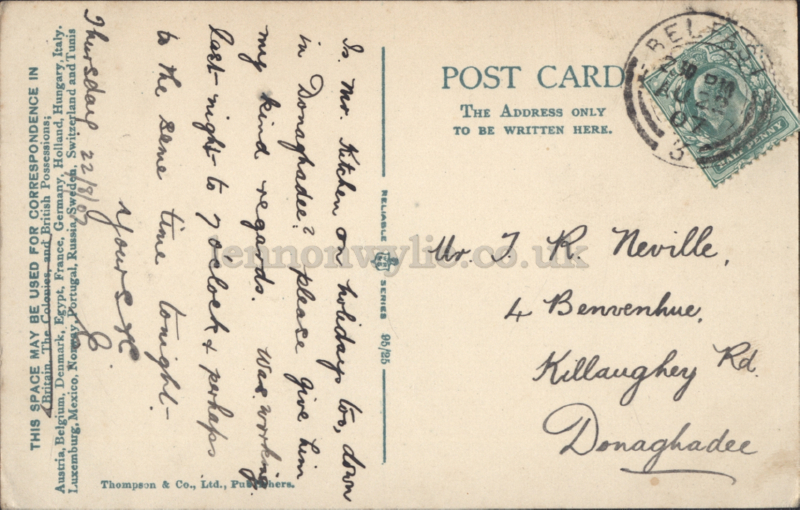 THIS SPACE MAY BE USED FOR CORRESPONDENCE IN
Britain, The Colonies, and British Possessions;
Austria, Belgium, Denmark, Egypt, France, Germany, Holland, Hungary, Italy,
Luxemburg, Mexico, Norway, Portugal, Russia, Sweden, Switzerland and Tunis
Thursday 22/8/07
Is Mr. Kitchen on holidays too, down
in Donaghadee? please give him
my kind regards. Was working
last night to 7 o'clock & perhaps
to the same time tonight-
Yours
J.
Thompson & Co., Ltd., Publishers.
RELIABLE SERIES 95/25
POST CARD
THE ADDRESS ONLY
TO BE WRITTEN HERE.
BELFAST
2 30 PM
AU 22
07
3
HALFPENNY
Mr. J. R. Neville,
4 Benvenhue,
Killaughey Rd.
Donaghadee
lennonwylie.co.uk